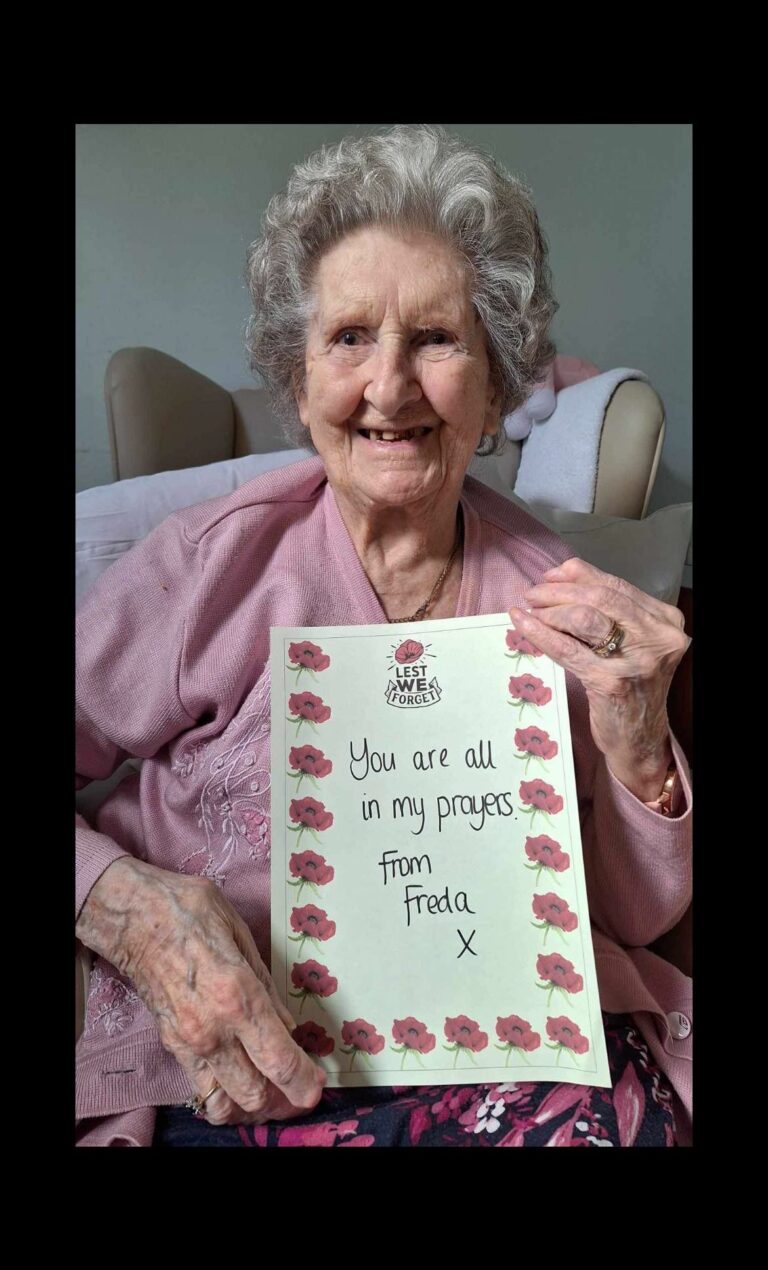 LEST
WE
FORGET
You are all
in my prayers.
From
Freda
X